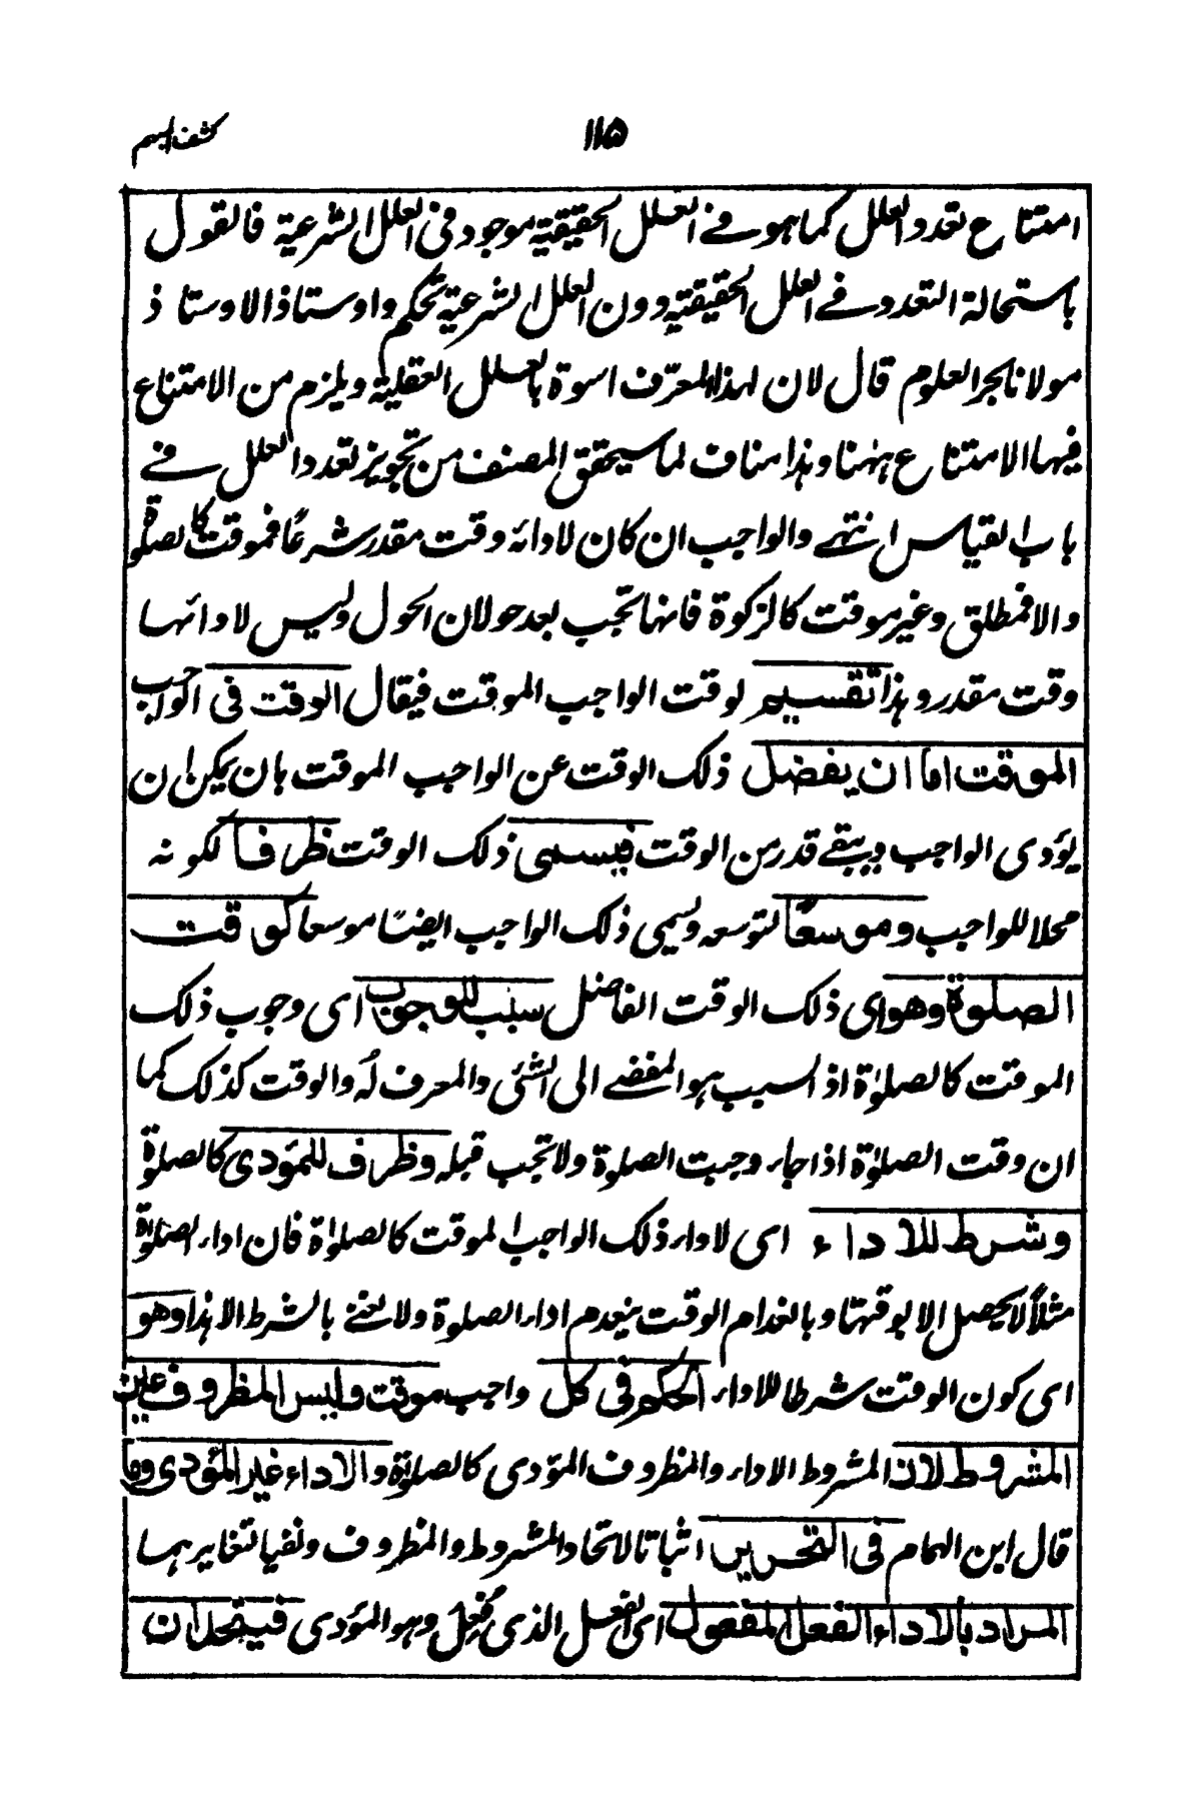 كشف المبهم
١١٥
امتناع تعدد العلل كما هو في العلل الحقيقية موجود في العلل الشرعية فالقول
باستحالة التعدد في العلل الحقيقية دون العلل الشرعية تحكم واوستاذ الاوستاذ
مولانا بحر العلوم قال لان لهذا المعرّف اسوة بالعلل العقلية ويلزم من الامتناع
فيها الامتناع ههنا وهذا مناف لما سيحقق المصنف من تجويز تعدد العلل في
باب القياس انتهى والواجب ان كان لادائه وقت مقدر شرعًا فموقت كالصلوة
والا فمطلق وغير موقت كالزكوة فانها تجب بعد حولان الحول وليس لادائها
وقت مقدر وهذا تقسيم لوقت الواجب الموقت فيقال الوقت فى الواجب
الموقت اما ان يفضل ذلك الوقت عن الواجب الموقت بان يمكن ان
يؤدى الواجب ويبقى قدر من الوقت فيسمى ذلك الوقت ظرفا لكونه
محلا للواجب وموسعًا لتوسعه ويسمى ذلك الواجب ايضًا موسعا كوقت
الصلوة وهو اى ذلك الوقت الفاضل سبب للوجوب اى وجوب ذلك
الموقت كالصلوٰة اذ السبب هو المفضي الى الشئ والمعرف لهُ والوقت كذلك كما
ان وقت الصلوٰة اذا جاء وجبت الصلوة ولا تجب قبله وظرف للمؤدى كالصلوة
وشرط للاداء اى لاداء ذلك الواجب الموقت كالصلوٰة فان اداء الصلوٰة
مثلاً لا يحصل الا بوقتها وبانعدام الوقت ينعدم اداء الصلوة ولا نعني بالشرط الا هذا وهو
اى كون الوقت شرطا للاداء الحكم فى كل واجب موقت وليس المظروف عين
المشروط لان المشروط الاداء والمظروف المؤدى كالصلوٰة والاداء غير المؤدى وما
قال ابن الهمام فى التحرير اثباتا لاتحاد المشروط والمظروف ونفيا لتغايرهما
المراد بالاداء الفعل المفعول اى الفعل الذى فُعِلَ وهو المؤدى فيتحدان